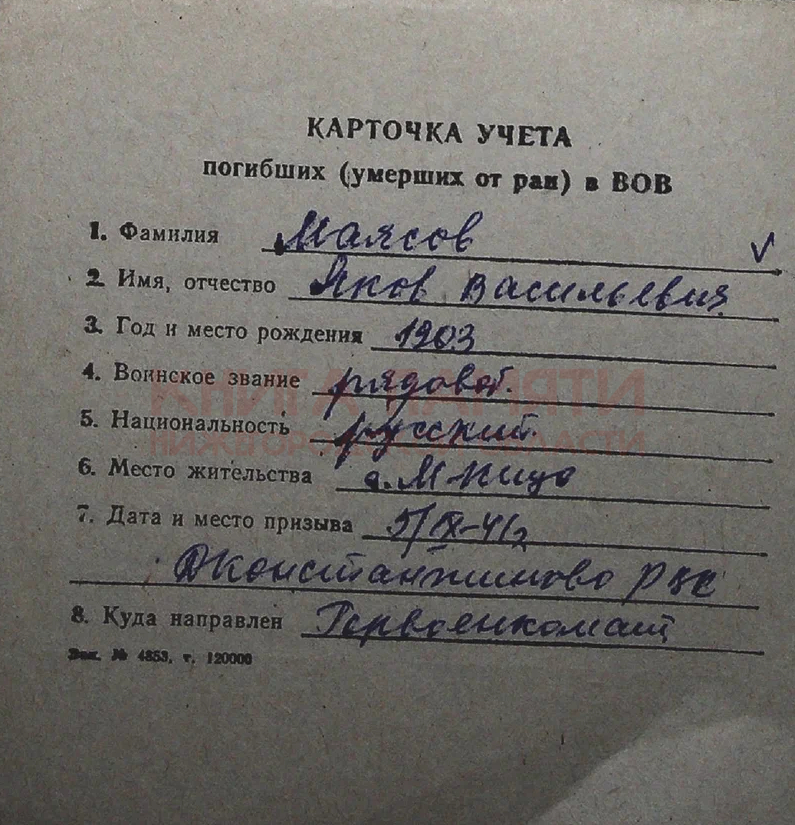 КАРТОЧКА УЧЕТА
погибших (умерших от ран) в ВОВ
1. Фамилия Маясов
2. Имя, отчество Яков Васильевич
3. Год и место рождения 1903
4. Воинское звание рядовой.
КНИГА ПАМЯТИ
5. Национальность русский
НИЖЕГОРОДСКОЙ ОБЛАСТИ
6. Место жительства с. М-Кицо
7. Дата и место призыва 5/IX-41г
ДКонстантиново РВК
8. Куда направлен Горвоенкомат
Зак. № 4853, т. 120000